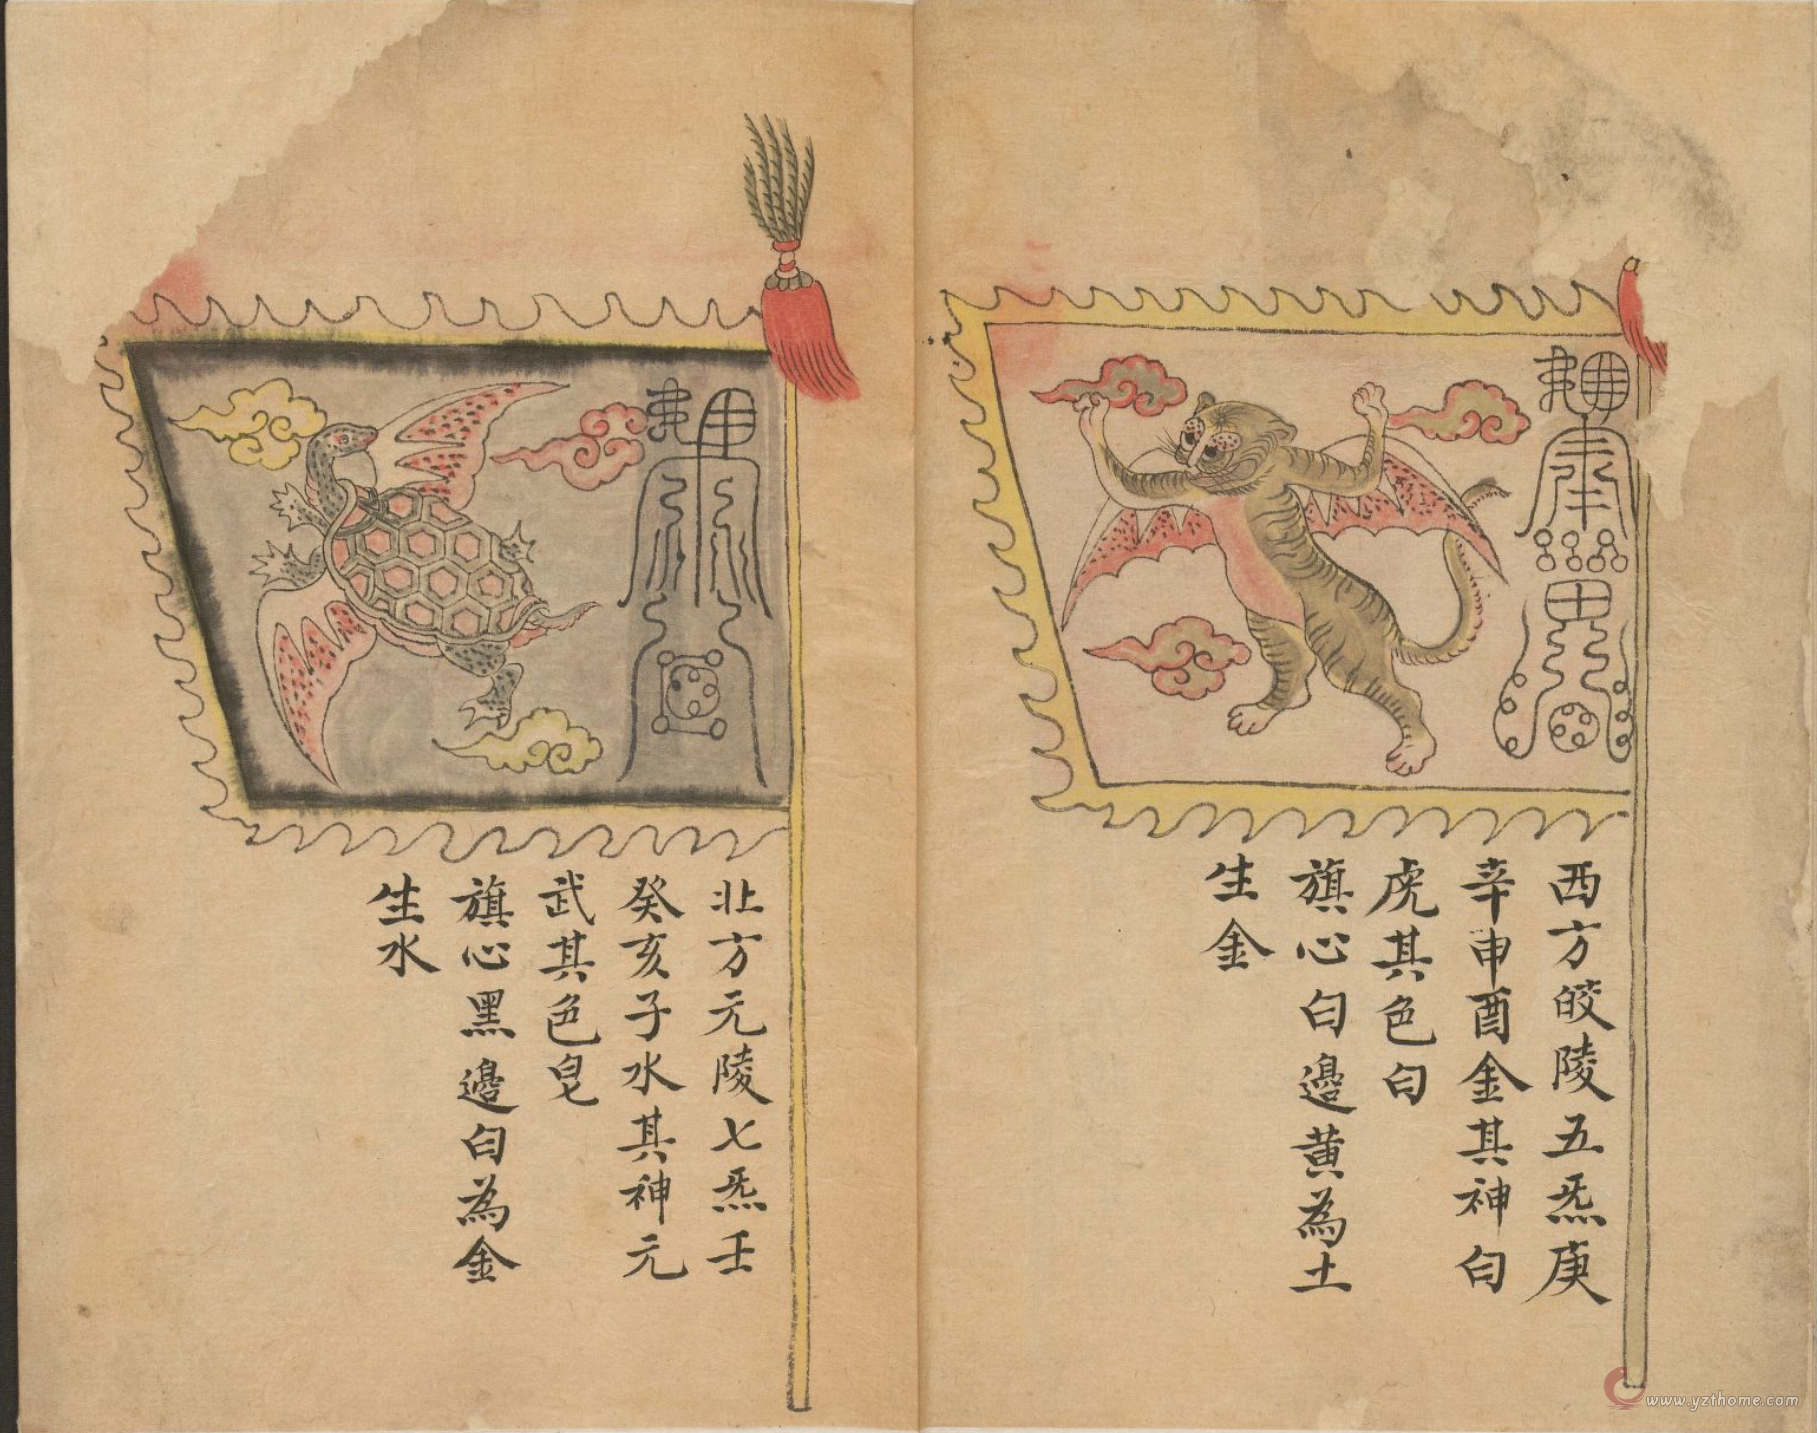 西方皎陵五炁庚
辛申酉金其神白
虎其色白
旗心白邊黃為土
生金
北方元陵七炁壬
癸亥子水其神元
武其色皂
旗心黑邊白為金
生水
www.yzthome.com